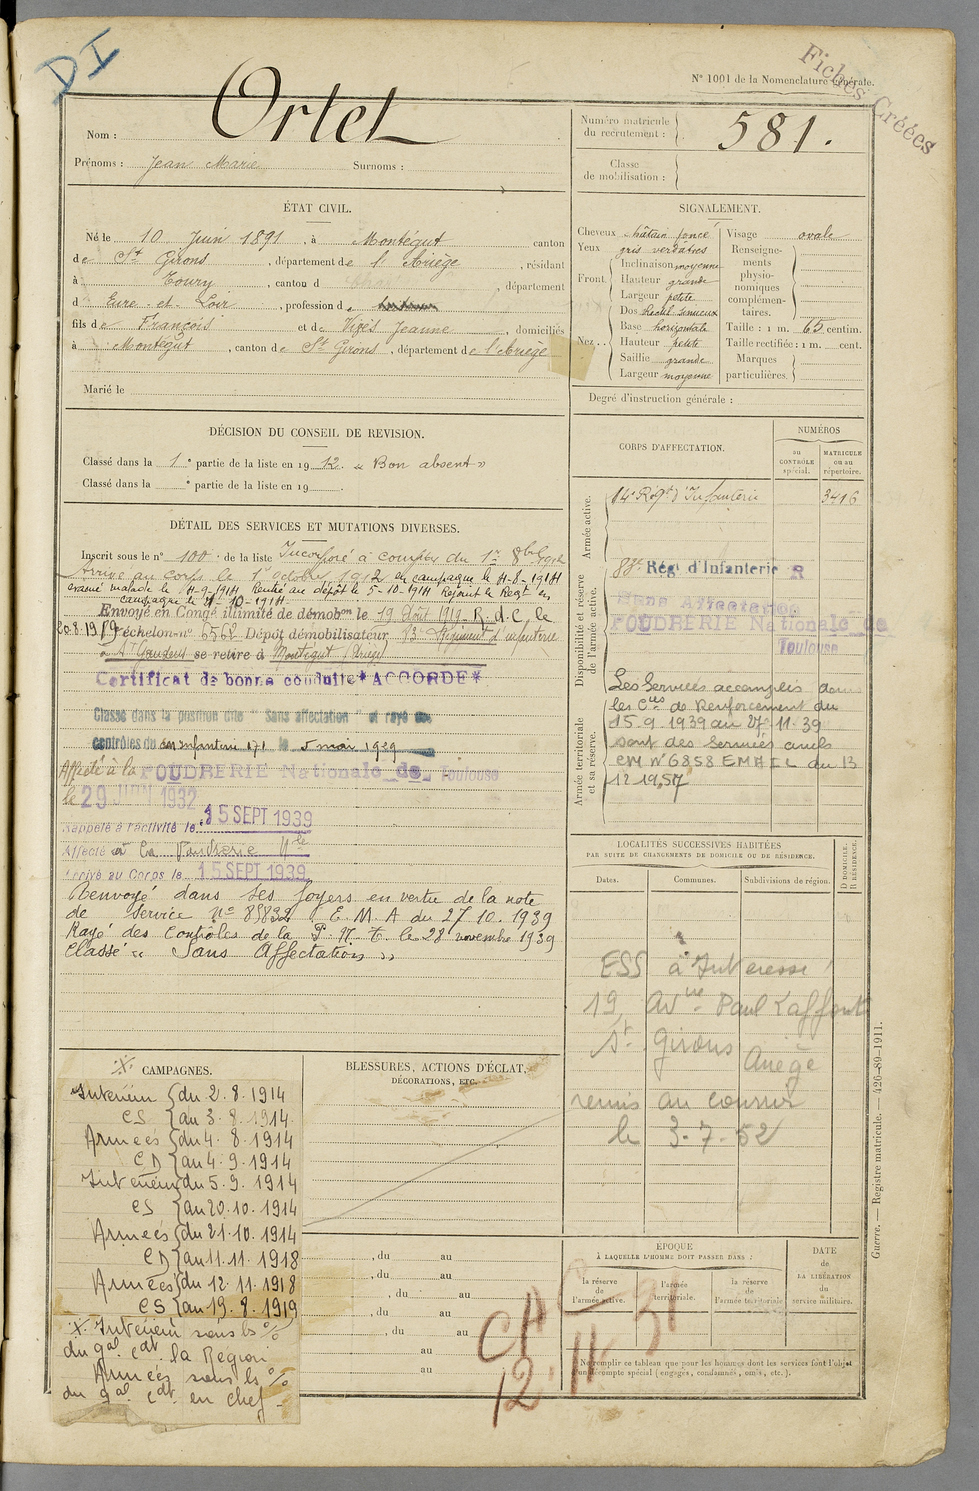 DI
Fiches Créées
N° 1001 de la Nomenclature générale.
Nom : Ortet
Prénoms : Jean Marie Surnoms :
Numéro matricule du recrutement : 581.
Classe de mobilisation :
ÉTAT CIVIL.
Né le 10 Juin 1891, à Montégut canton
de St Girons, département de l'Ariège, résidant
à Toury, canton d , département
d Eure-et-Loir, profession d
fils de François et de Vizès Jeanne, domiciliés
à Montégut, canton de St Girons, département de l'Ariège
Marié le
SIGNALEMENT.
Cheveux châtain foncé
Yeux gris verdâtres
Front.
Inclinaison moyenne
Hauteur grande
Largeur petite
Nez..
Dos sinueux
Base horizontale
Hauteur petite
Saillie grande
Largeur moyenne
Visage ovale
Renseignements physionomiques complémentaires.
Taille : 1 m. 65 centim.
Taille rectifiée : 1 m. cent.
Marques particulières.
Degré d'instruction générale :
DÉCISION DU CONSEIL DE REVISION.
Classé dans la 1e partie de la liste en 1912. « Bon absent »
Classé dans la e partie de la liste en 19 .
DÉTAIL DES SERVICES ET MUTATIONS DIVERSES.
Inscrit sous le n° 100 de la liste Incorporé à compter du 1er 8bre 1912
Arrivé au corps le 1er octobre 1912 en campagne le 4-8-1914
évacué malade le 4-9-1914 Rentré au dépôt le 5-10-1914 Rejoint le Regt en
campagne le 21-10-1914
Envoyé en Congé illimité de démobon le 19 Août 1919. R.d.C. le
20.8.1919 échelon n° Dépôt démobilisateur 83e Régiment d'infanterie
à St Gaudens se retire à Montégut (Ariège)
Certificat de bonne conduite *ACCORDÉ*
Classé dans la position dite "Sans affectation" et rayé des
contrôles du d'infanterie 171 le 5 mai 1929
Affecté à la POUDRERIE Nationale de Toulouse
le 29 JUIN 1932
Rappelé à l'activité le 15 SEPT 1939
Affecté à la Poudrerie Nle
Arrivé au Corps le 15 SEPT 1939
Renvoyé dans ses foyers en vertu de la note
de service n° E.M.A du 27.10.1939
Rayé des Contrôles de la P.N.T. le 28 novembre 1939
Classé « Sans Affectation »
CORPS D'AFFECTATION.
NUMÉROS
au CONTRÔLE spécial.
MATRICULE ou au répertoire.
Armée active.
14e Régt d'Infanterie 3416
Disponibilité et réserve de l'armée active.
83e Régt d'Infanterie R
Sans Affectation
POUDRERIE Nationale de
Toulouse
Armée territoriale et sa réserve.
Les Services accomplis dans
les Cies de Renforcement du
15.9.1939 au 27.11.39
sont des Services auxils
CM N° 6858 EMA du 13
12 1957
LOCALITÉS SUCCESSIVES HABITÉES
PAR SUITE DE CHANGEMENTS DE DOMICILE OU DE RÉSIDENCE.
Dates. Communes. Subdivisions de région.
D DOMICILE. R RÉSIDENCE.
ESS à Intéressé
19, Avnue Paul Laffont
St. Girons Ariège
remis au courrier
le 3-7-52
CAMPAGNES.
Intérieur du 2.8.1914
CS au 3.8.1914
Armées du 4.8.1914
CD au 4.9.1914
Intérieur du 5.9.1914
CS au 20.10.1914
Armées du 21.10.1914
CD au 11.11.1918
Armées du 12.11.1918
CS au 19.8.1919
X. Intérieur sous ls %
du gal cdt la Région
Armées sous ls %
du gal cdt en chef
BLESSURES, ACTIONS D'ÉCLAT,
DÉCORATIONS, ETC.
, du au
, du au
, du au
, du au
, du au
au
au
ÉPOQUE
À LAQUELLE L'HOMME DOIT PASSER DANS :
la réserve de l'armée active.
l'armée territoriale.
la réserve de l'armée territoriale
DATE
de
LA LIBÉRATION
du
service militaire.
Ne remplir ce tableau que pour les hommes dont les services font l'objet
d'un décompte spécial (engagés, condamnés, omis, etc.).
CA
12.11.37
Guerre. — Registre matricule. — 426-89-1911.